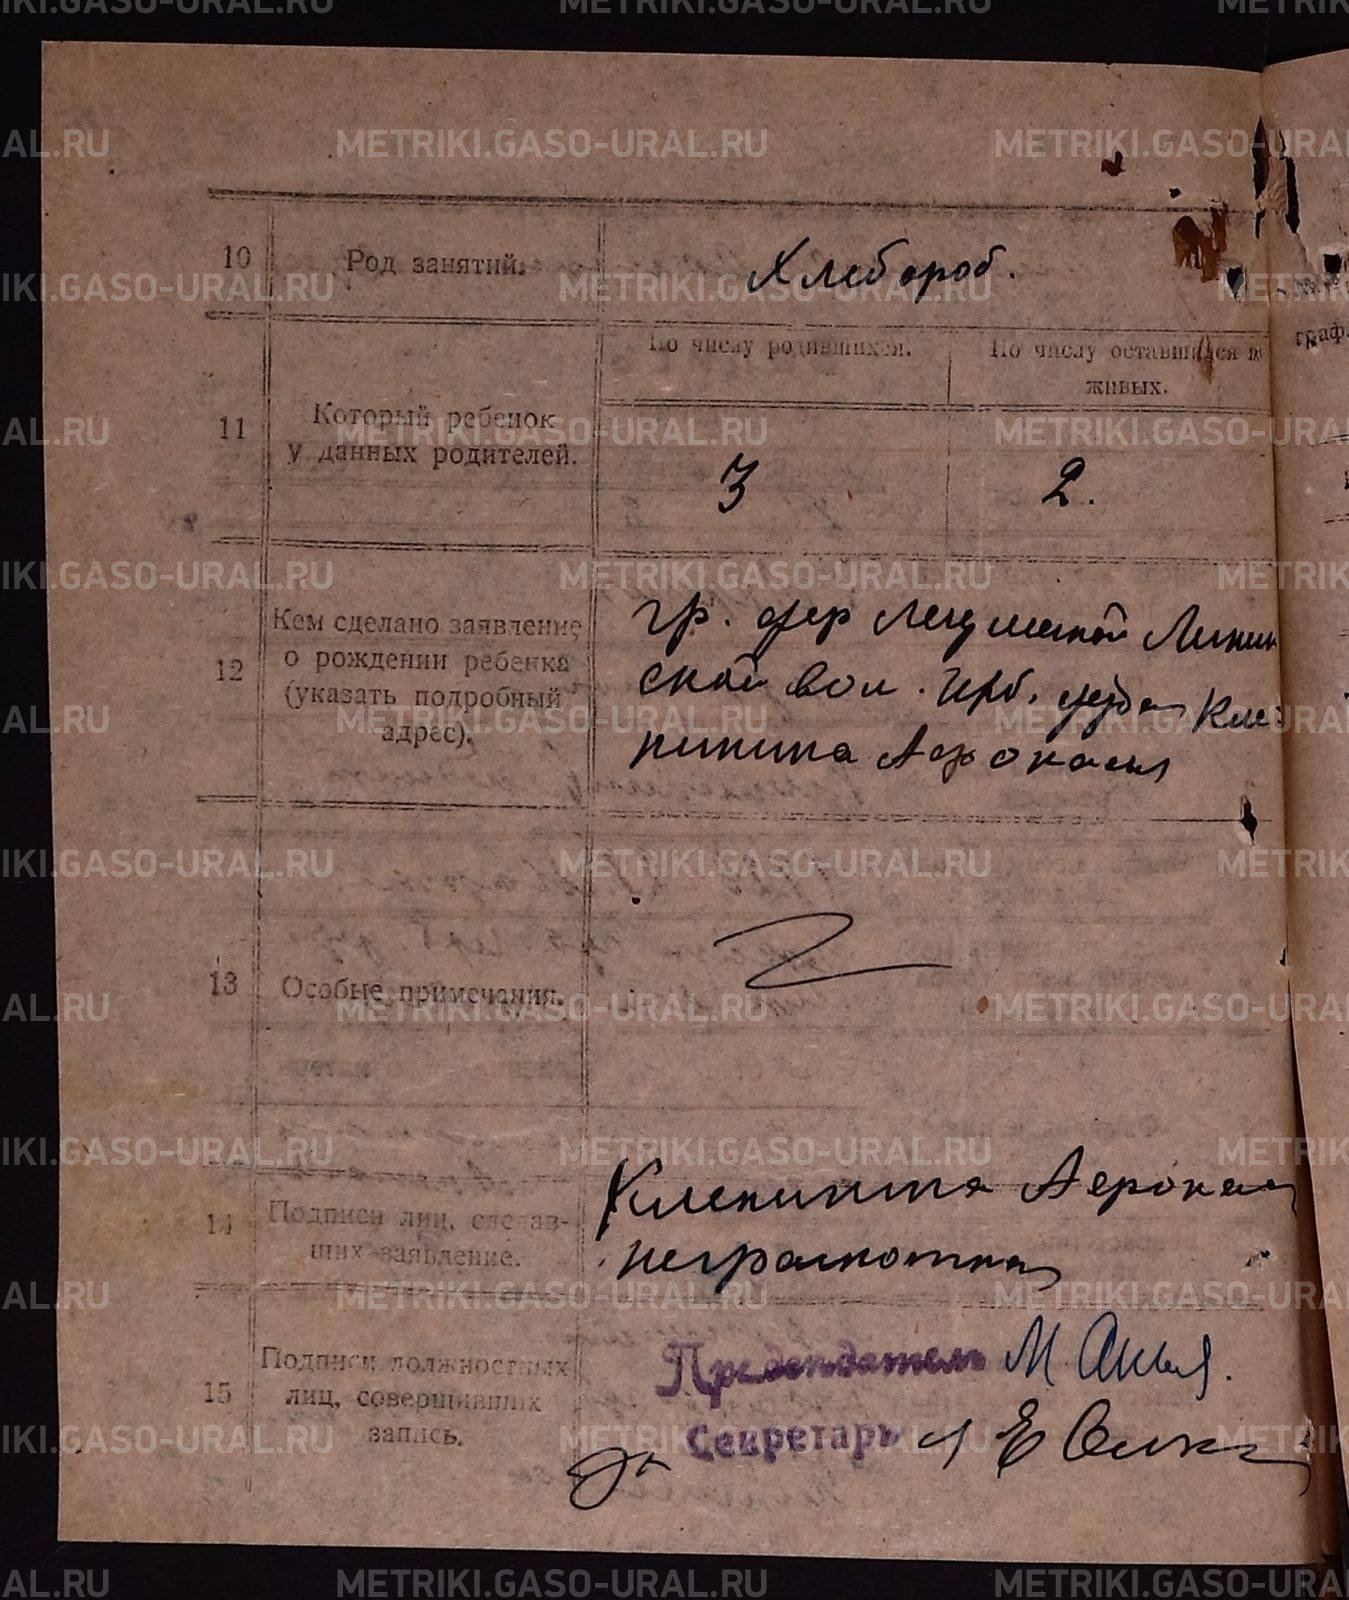 10
Род занятий.
Хлебороб.
11
Который ребенок
у данных родителей.
По числу родившихся.
По числу оставшихся в
живых.
3
2.
12
Кем сделано заявление
о рождении ребенка
(указать подробный
адрес).
гр. дер
ской вол. Ирб. уезда Кле
пинина
13
Особые примечания.
14
Подписи лиц, сделав-
ших заявление.
Клепинина
неграмотная
15
Подписи должностных
лиц, совершивших
запись.
Председатель М.
Секретарь
граф.
METRIKI.GASO-URAL.RU